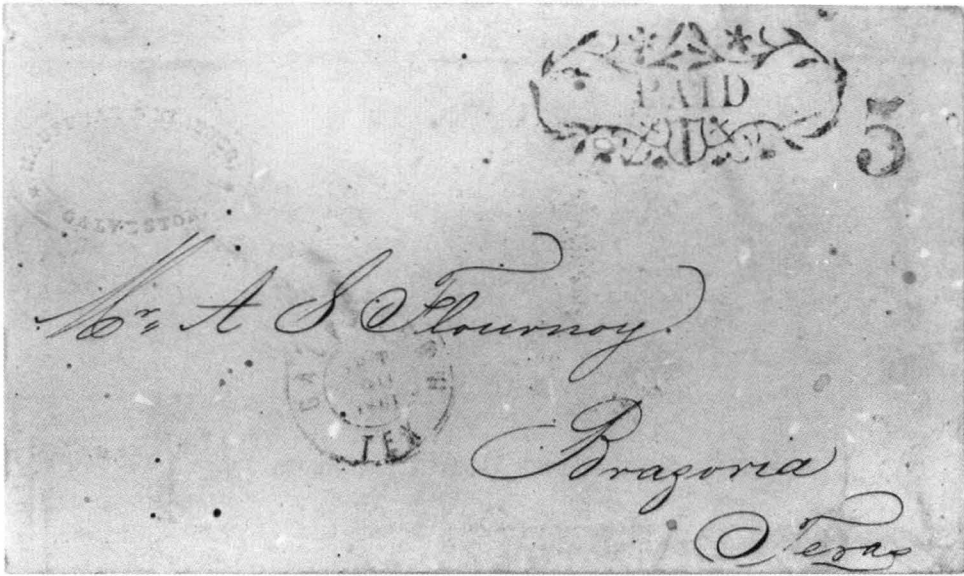 PAID
5
GALVESTON
Mr. A S Flournoy.
1861
TEX
Brazoria
Texas